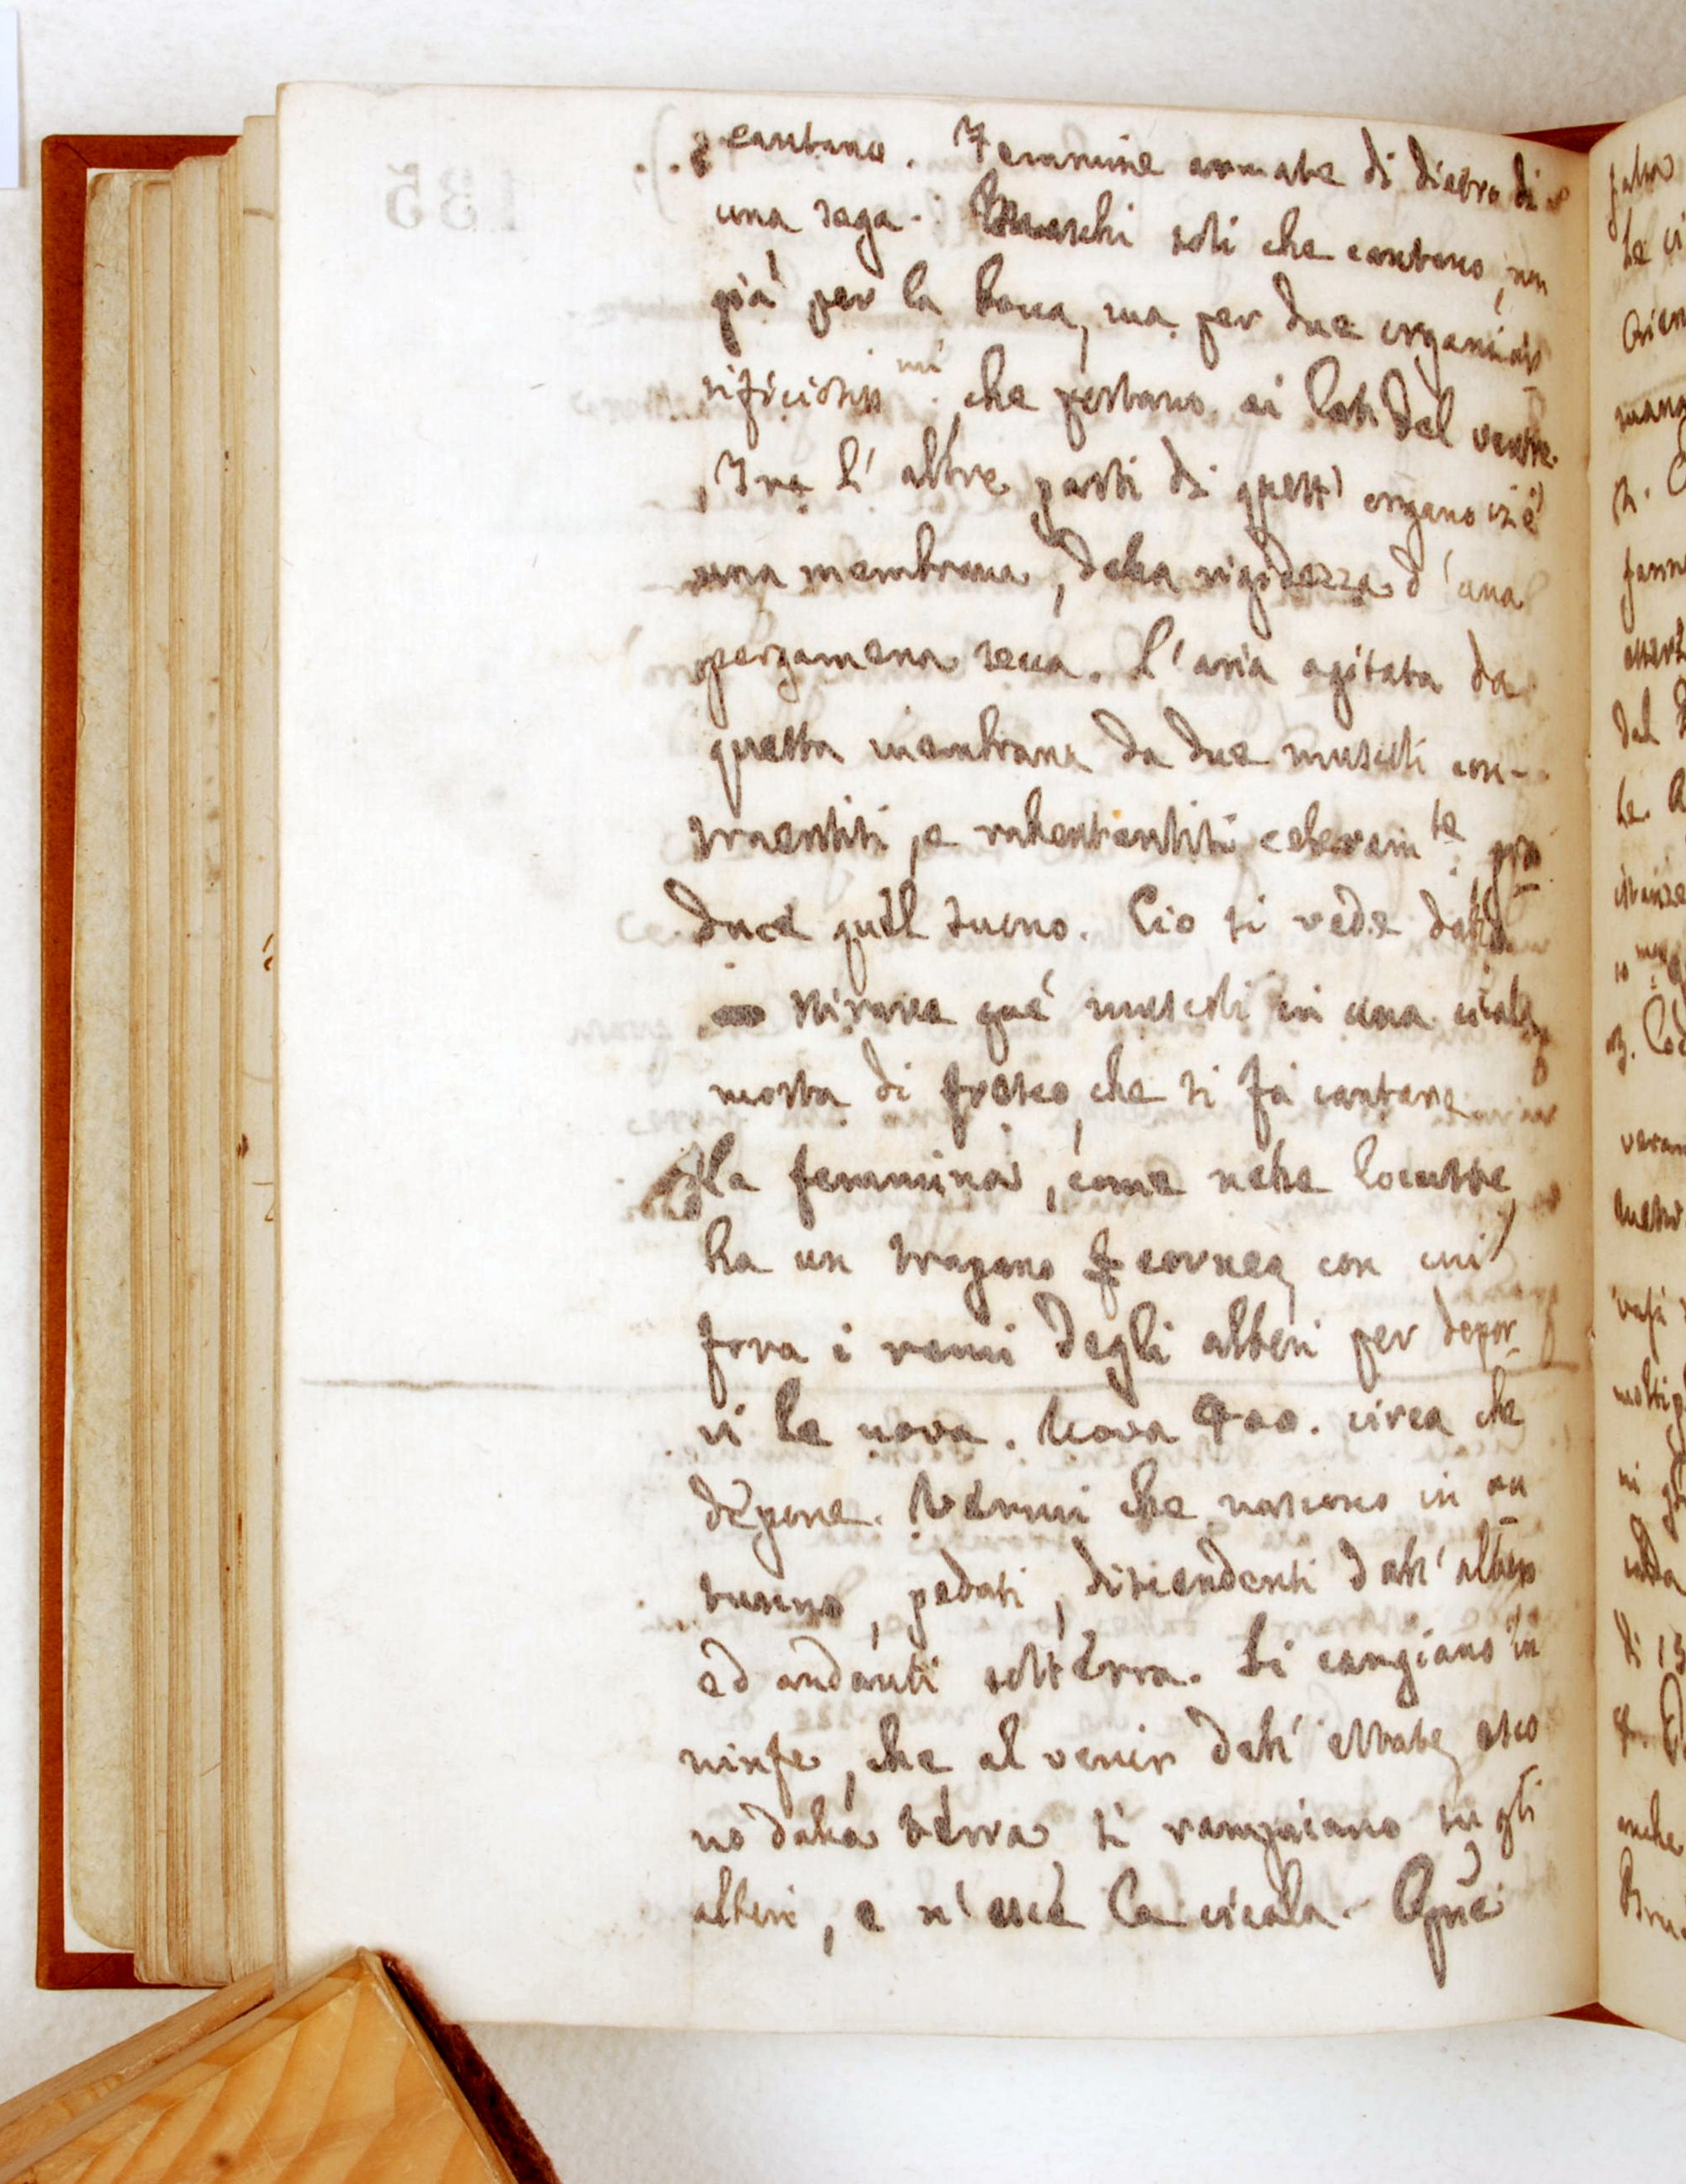 cantano. Femmine armate di dietro di
una sega. Maschi soli che cantano, non
già per la bocca, ma per due organi ar
tificiosissmi che portano ai lati del ventre.
Tra l'altre parti di quest' organo vi è
una membrana, della rigidezza d'una
pergamena secca. L'aria agitata da
questa membrana da due muscoli con-
traentisi, e rallentantisi celeramte, pro
duce quel suono. Cio si vede dallo
stirare que' muscoli in una cicala
morta di fresco, che si fà cantare
La femmina, come nelle locuste,
ha un trapano corneo, con cui
fora i rami degli alberi per depor
vi le uova. Uova 400. circa che
depone. Vermi che nascono in au
tunno, pedati, discendenti dall' albero
ed andanti sotterra. Si cangiano in
ninfe, che al venir dell' estate, esco
no dalla terra si rampicano su gli
alberi, e n'esce la cicala. Que
135